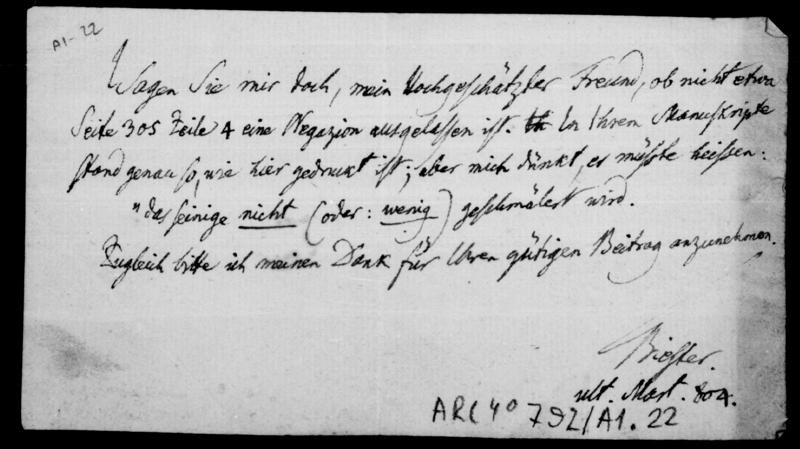 A1-22
Sagen Sie mir doch, mein Hochgeschätzter Freund, ob nicht etwa
Seite 305 Zeile 4 eine Negazion ausgelassen ist. In Ihrem Manuskripte
stand genau so, wie hier gedrukt ist; aber mich dünkt, es müßte heissen:
"das seinige nicht (oder: wenig) geschmälert wird.
Zugleich bitte ich meinen Dank für Ihren gütigen Beitrag anzunehmen.
Biester.
ult. Mart. 804.
ARC 4° 792/A1. 22